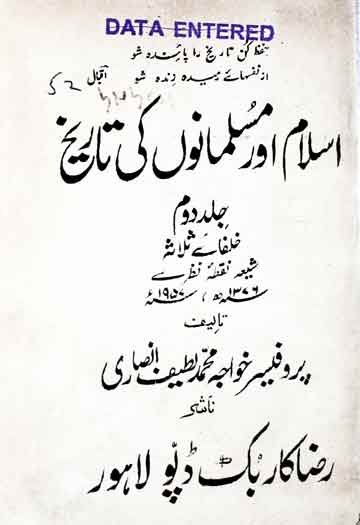 DATA ENTERED
ضبط کن تاریخ را پائندہ شو
از نفسہائے رمیدہ زندہ شو اقبال
52
اسلام اور مسلمانوں کی تاریخ
جلد دوم
خلفائے ثلاثہ
شیعہ نقطۂ نظر سے
۱۳۷۶ھ، ۱۹۵۷ء
تالیف
پروفیسر خواجہ محمد لطیف انصاری
ناشر
رضا کار بک ڈپو لاہور